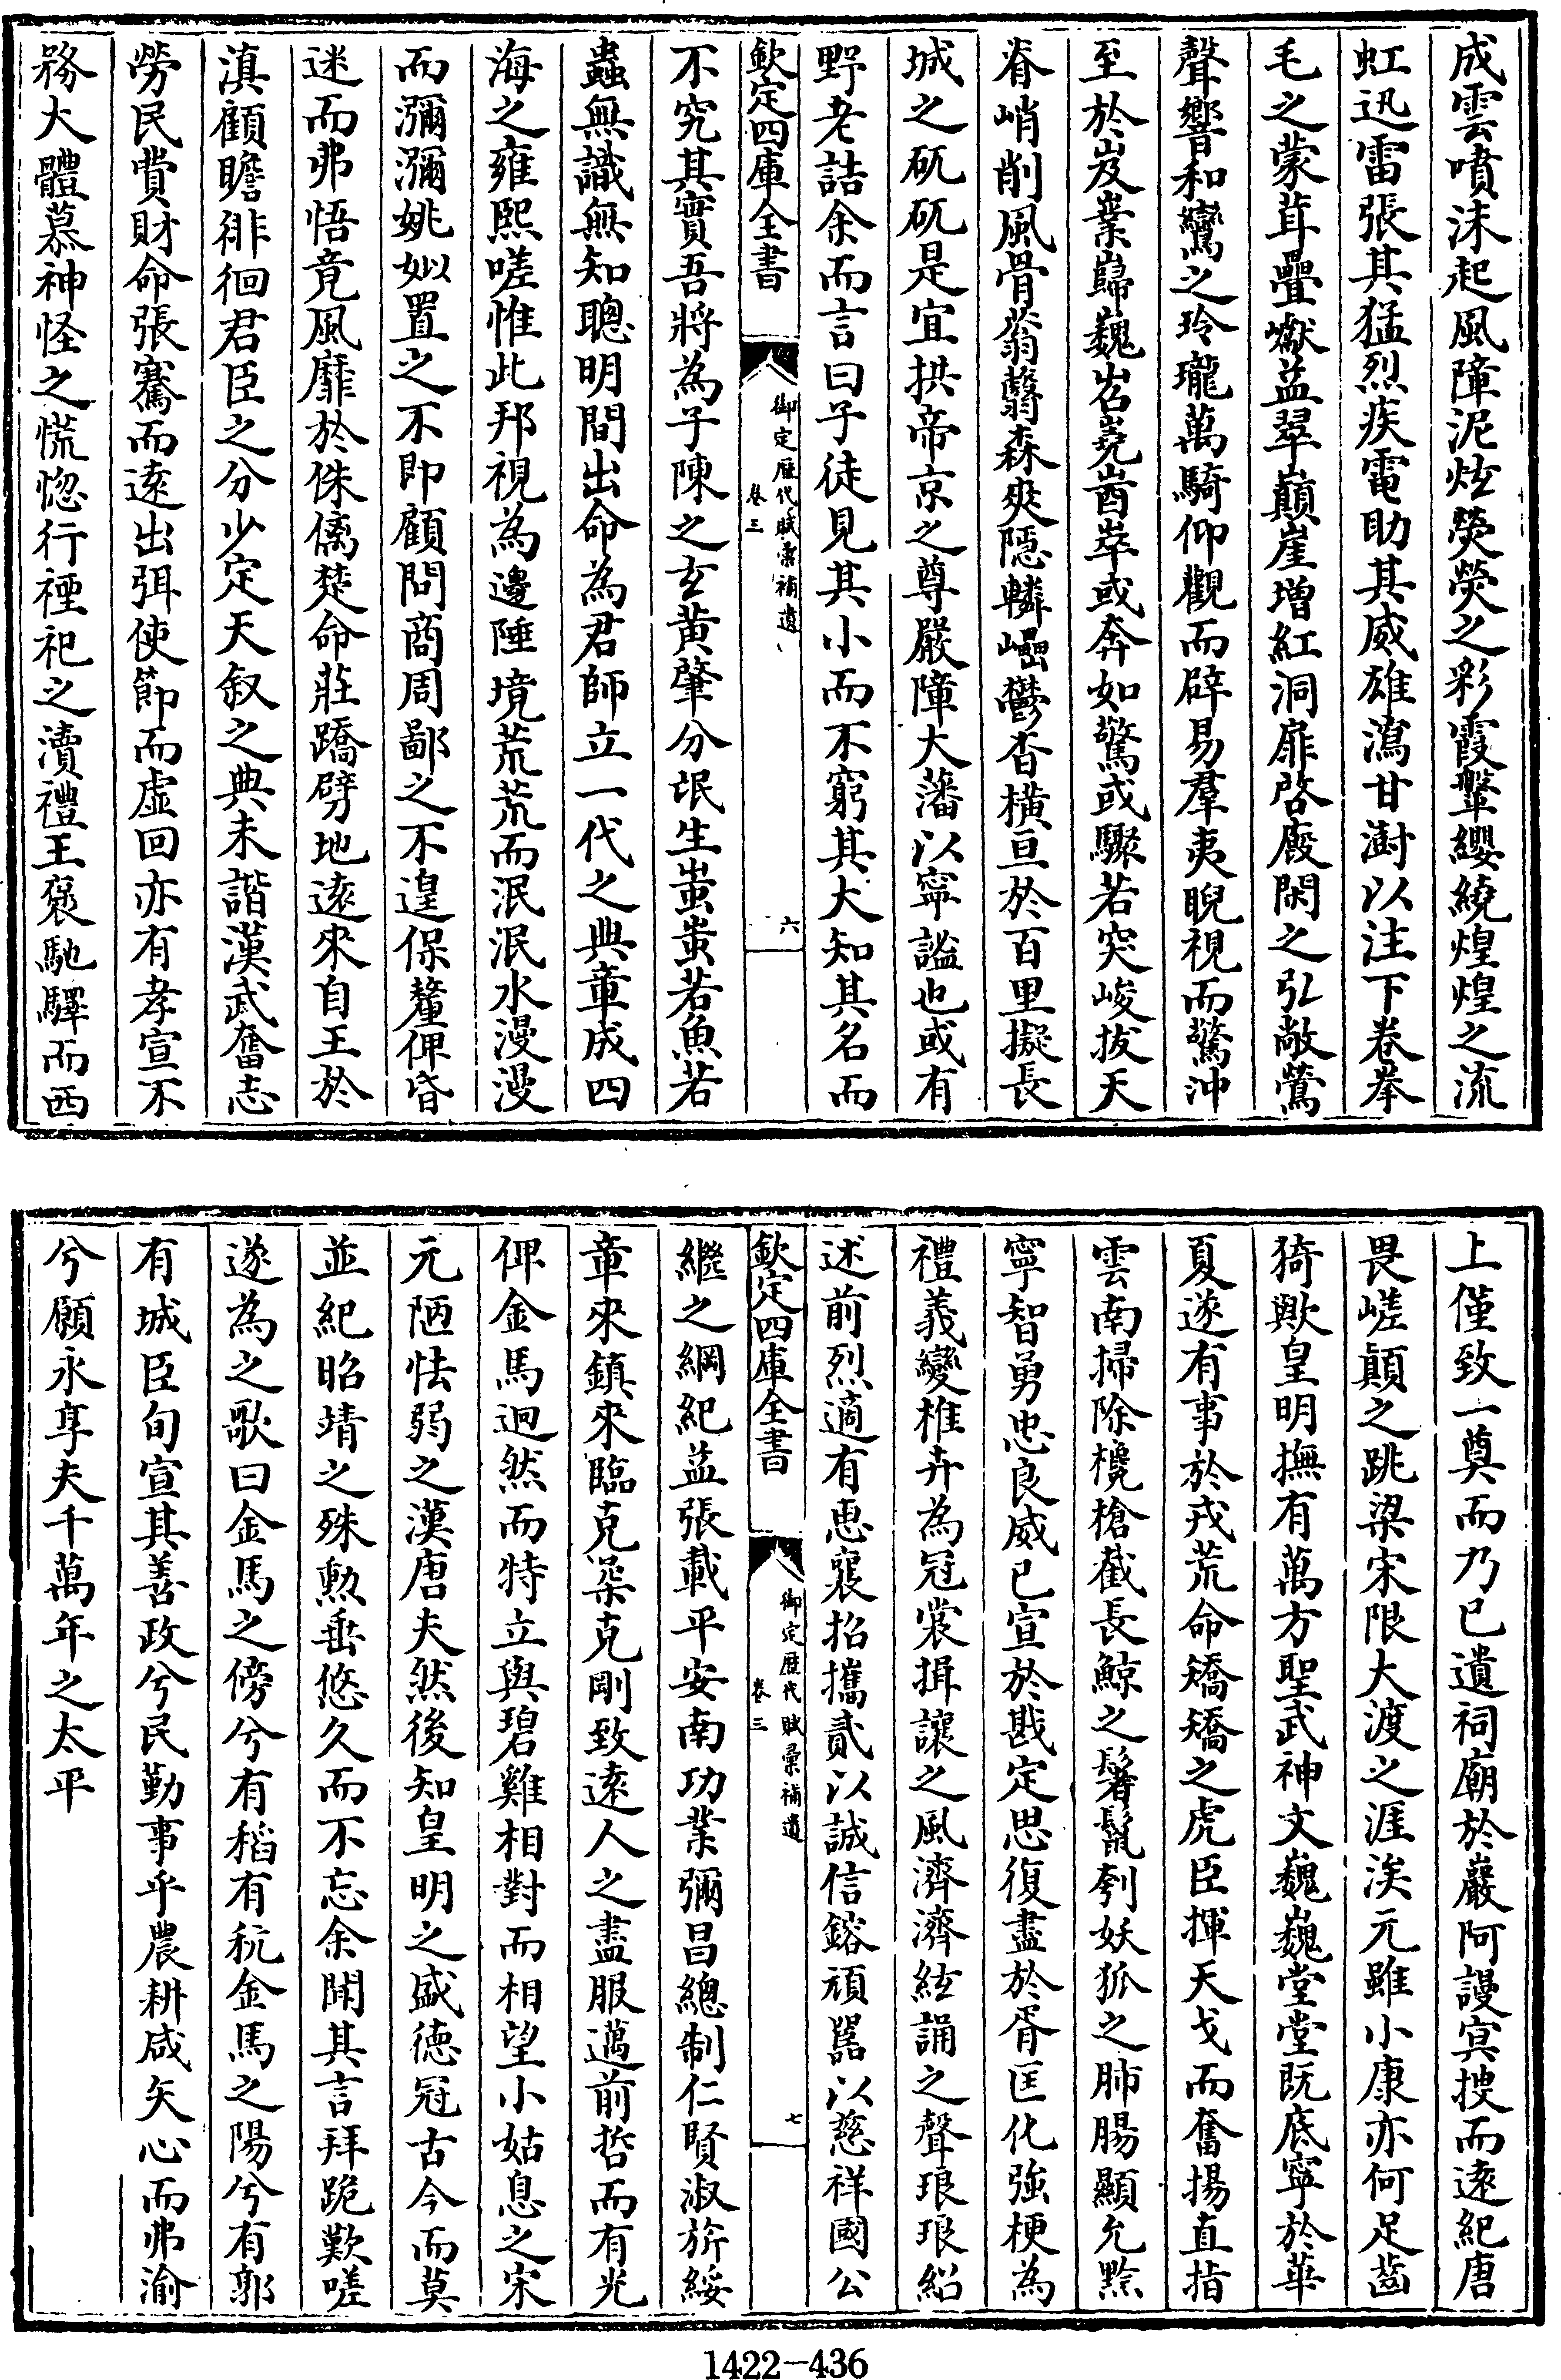 成雲噴沫起風障泥炫熒熒之彩霞鞶纓繞煌煌之流
虹迅雷張其猛烈疾電助其威雄瀉甘澍以注下卷拳
毛之蒙茸疊巘益翠巔崖增紅洞扉啓廄閑之弘敞鶯
聲響和鸞之玲瓏萬騎仰觀而辟易羣夷睨視而驚沖
至於岌業巋巍岧嶤崷崒或奔如驚或驟若突峻拔天
脊峭削風骨蓊蘙森爽隱轔嵓鬱杳橫亘於百里擬長
城之矹矹是宜拱帝京之尊嚴障大藩以寧謐也或有
野老詰余而言曰子徒見其小而不窮其大知其名而
欽定四庫全書
御定歴代賦彙補遺
卷三
六
不究其實吾將為子陳之玄黄肇分氓生蚩蚩若魚若
蟲無識無知聰明間出命為君師立一代之典章成四
海之雍熙嗟惟此邦視為邊陲境荒荒而泯泯水漫漫
而瀰瀰姚姒置之不即顧問商周鄙之不遑保釐俾昏
迷而弗悟竟風靡於侏儒楚命莊蹻劈地遠來自王於
滇顧瞻徘徊君臣之分少定天叙之典未諧漢武奮志
勞民費財命張騫而遠出弭使節而虛回亦有孝宣不
務大體慕神怪之慌惚行禋祀之瀆禮王褒馳驛而西
上僅致一奠而乃已遺祠廟於巖阿謾寘搜而遠紀唐
畏嵯顛之跳梁宋限大渡之涯涘元雖小康亦何足齒
猗歟皇明撫有萬方聖武神文巍巍堂堂既底寧於華
夏遂有事於戎荒命矯矯之虎臣揮天戈而奮揚直指
雲南掃除欃槍截長鯨之鬐鬣刳妖狐之肺腸顯允黔
寧智勇忠良威已宣於戡定思復盡於胥匡化強梗為
禮義變椎卉為冠裳揖讓之風濟濟絃誦之聲琅琅紹
述前烈適有惠襄招攜貳以誠信鎔頑嚚以慈祥國公
欽定四庫全書
御定歴代賦彙補遺
卷三
七
繼之綱紀益張載平安南功業彌昌總制仁賢淑旂綏
章來鎮來臨克柔克剛致遠人之盡服邁前哲而有光
俾金馬迥然而特立與碧雞相對而相望小姑息之宋
元陋怯弱之漢唐夫然後知皇明之盛德冠古今而莫
並紀昭靖之殊勲垂悠久而不忘余聞其言拜跪歎嗟
遂為之歌曰金馬之傍兮有稻有秔金馬之陽兮有郭
有城臣旬宣其善政兮民勤事乎農耕咸矢心而弗渝
兮願永享夫千萬年之太平
1422—436